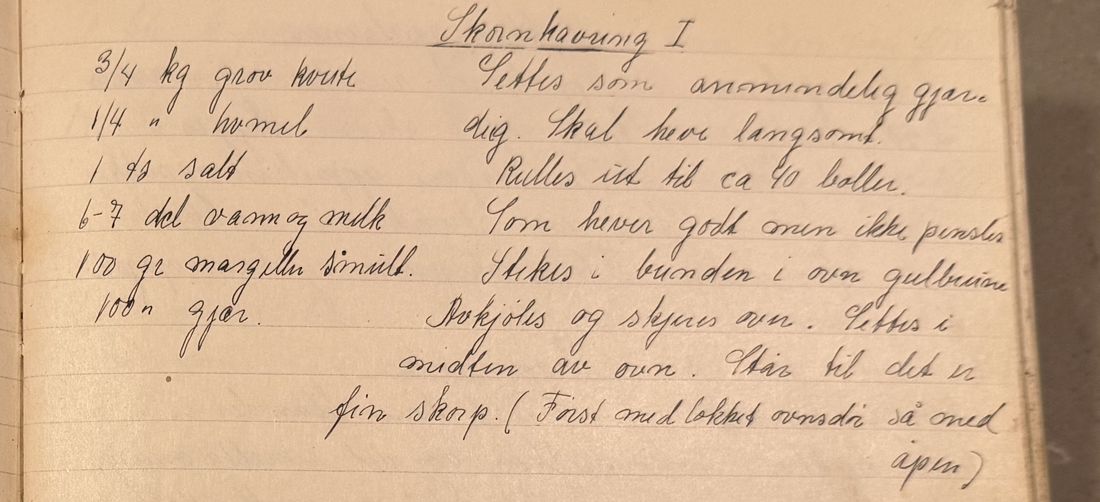 Skornkavring I
3/4 kg grov hvete
1/4 " hvmel
1 ts salt
6-7 del vann og melk
100 gr marg eller smult.
100 " gjær.
Settes som anmindelig gjær-
dig. Skal heve langsomt.
Rulles ut til ca 40 boller.
Som hever godt men ikke pensles
Stekes i bunden i ovn gulbrune
Avkjøles og skjæres over. Settes i
midten av ovn. Står til det er
fin skorp. (Først med lokket ovnsdør så med
åpen)